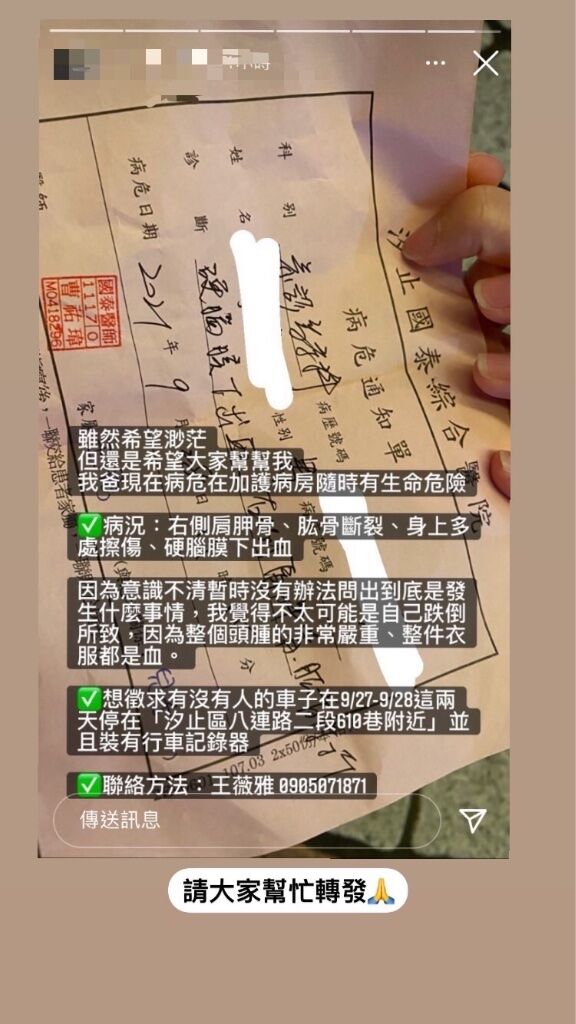 汐止國泰綜合醫院
病危通知單
科別
姓名
病歷號碼
性別
診斷 硬腦膜下出
病危日期 2021年9月
分
國泰醫師
11170
曹祐瑋
M0418296
雖然希望渺茫
但還是希望大家幫幫我
我爸現在病危在加護病房隨時有生命危險
✅病況：右側肩胛骨、肱骨斷裂、身上多
處擦傷、硬腦膜下出血
因為意識不清暫時沒有辦法問出到底是發
生什麼事情，我覺得不太可能是自己跌倒
所致，因為整個頭腫的非常嚴重、整件衣
服都是血。
✅想徵求有沒有人的車子在9/27-9/28這兩
天停在「汐止區八連路二段610巷附近」並
且裝有行車記錄器
107.03 2x50份
✅聯絡方法：王薇雅 0905071871
傳送訊息
請大家幫忙轉發🙏